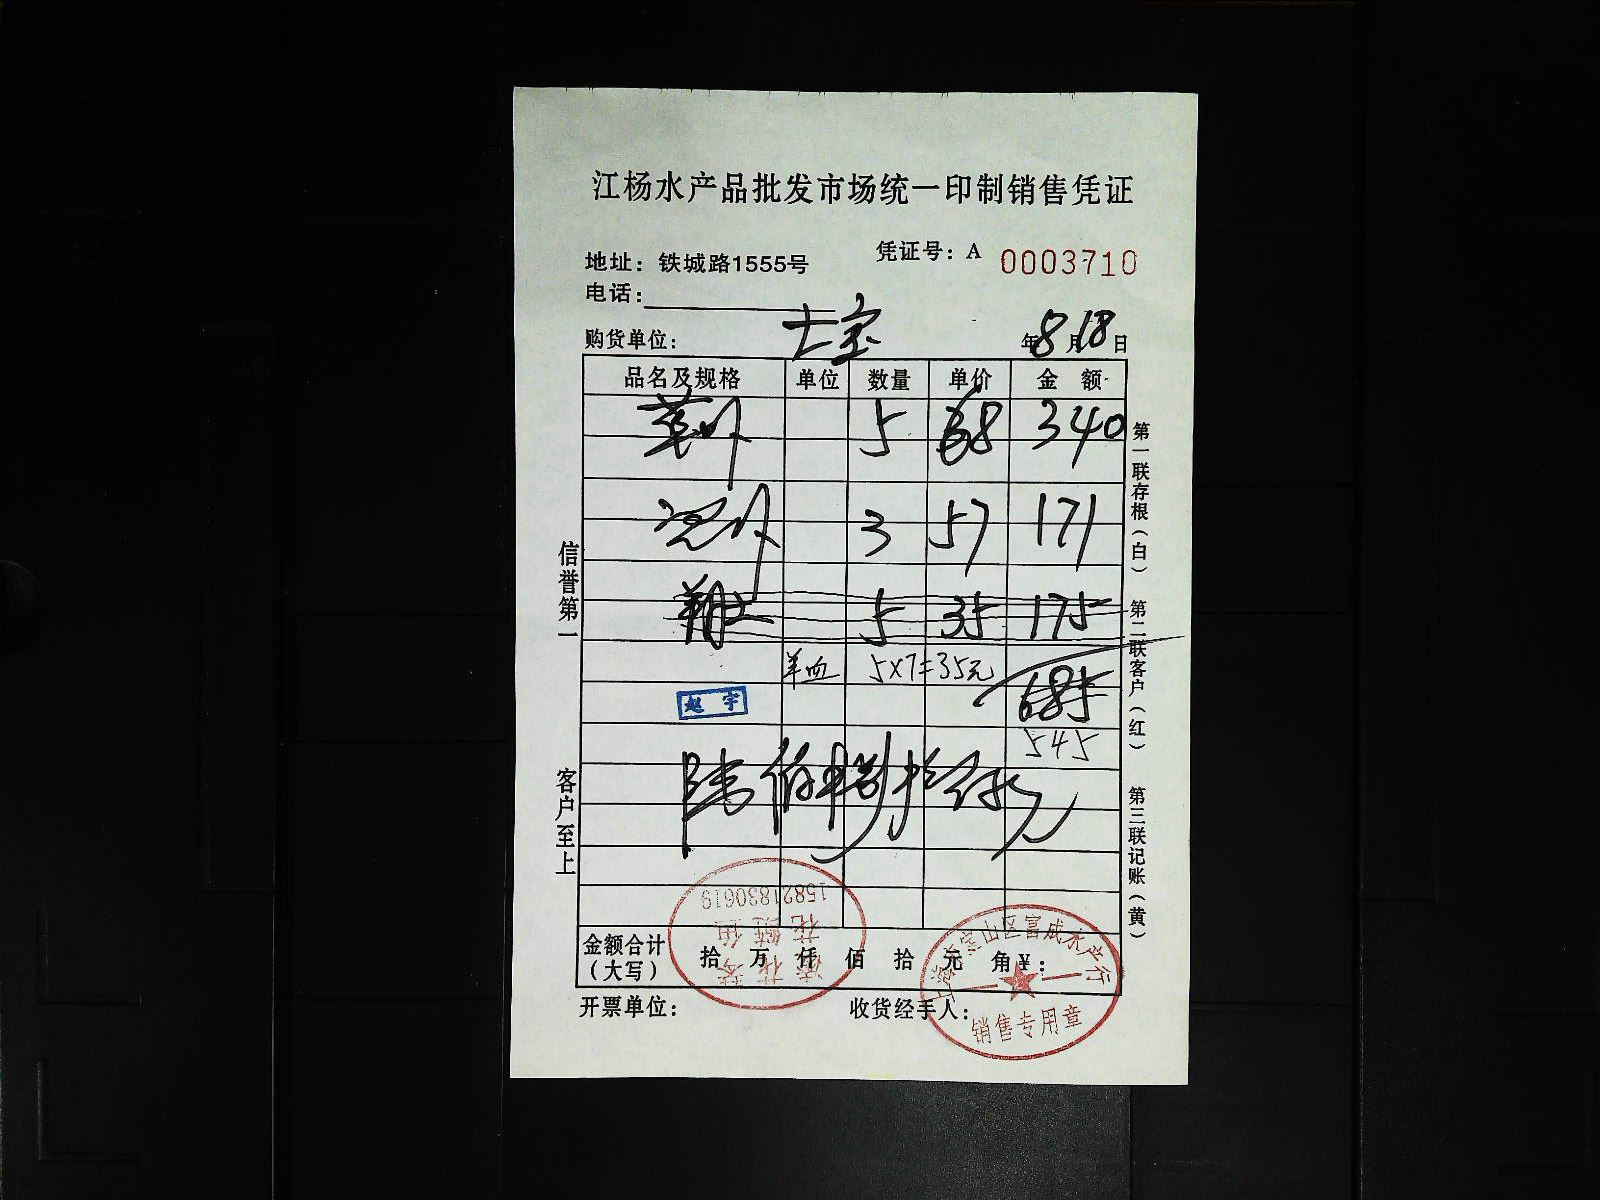 江杨水产品批发市场统一印制销售凭证
凭证号：A 0003710
地址：铁城路1555号
电话：
购货单位：七宝 年8月18日
品名及规格 单位 数量 单价 金额
5 68 340
3 57 171
5 35 175
羊血 5×7=35元
685
赵宇
545
陆佰捌拾伍元
金额合计（大写） 拾 万 仟 佰 拾 元 角 ¥：
开票单位： 收货经手人：
信誉第一
客户至上
第一联存根（白） 第二联客户（红） 第三联记账（黄）
15821830619
上海宝山区富成水产行
销售专用章